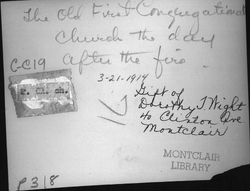 The Old First Congregational
Church the day
after the fire
C-C19
3-21-1914
F. Cl. ch.
Gift of
Dorothy T Wight
40 Clinton Ave
Montclair
MONTCLAIR
LIBRARY
P 318